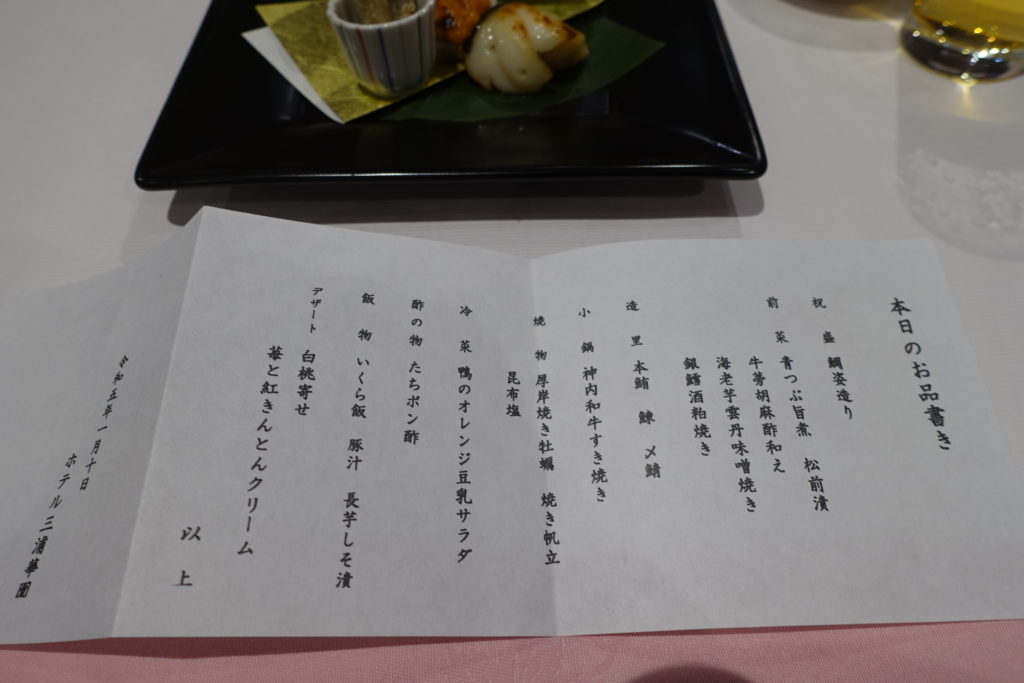 本日のお品書き
祝 盛 鯛姿造り
前 菜 青つぶ旨煮 松前漬
牛蒡胡麻酢和え
海老芋雲丹味噌焼き
銀鱈酒粕焼き
造 里 本鮪 鰊 〆鯖
小 鍋 神内和牛すき焼き
焼 物 厚岸焼き牡蠣 焼き帆立
昆布塩
冷 菜 鴨のオレンジ豆乳サラダ
酢の物 たちポン酢
飯 物 いくら飯 豚汁 長芋しそ漬
デザート 白桃寄せ
苺と紅きんとんクリーム
以 上
令和五年一月十日
ホテル三浦華園